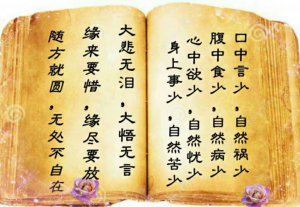 口中言少，自然祸少
腹中食少，自然病少
心中欲少，自然忧少
身上事少，自然苦少
大悲无泪，大悟无言
缘来要惜，缘尽要放
随方就圆，无处不自在